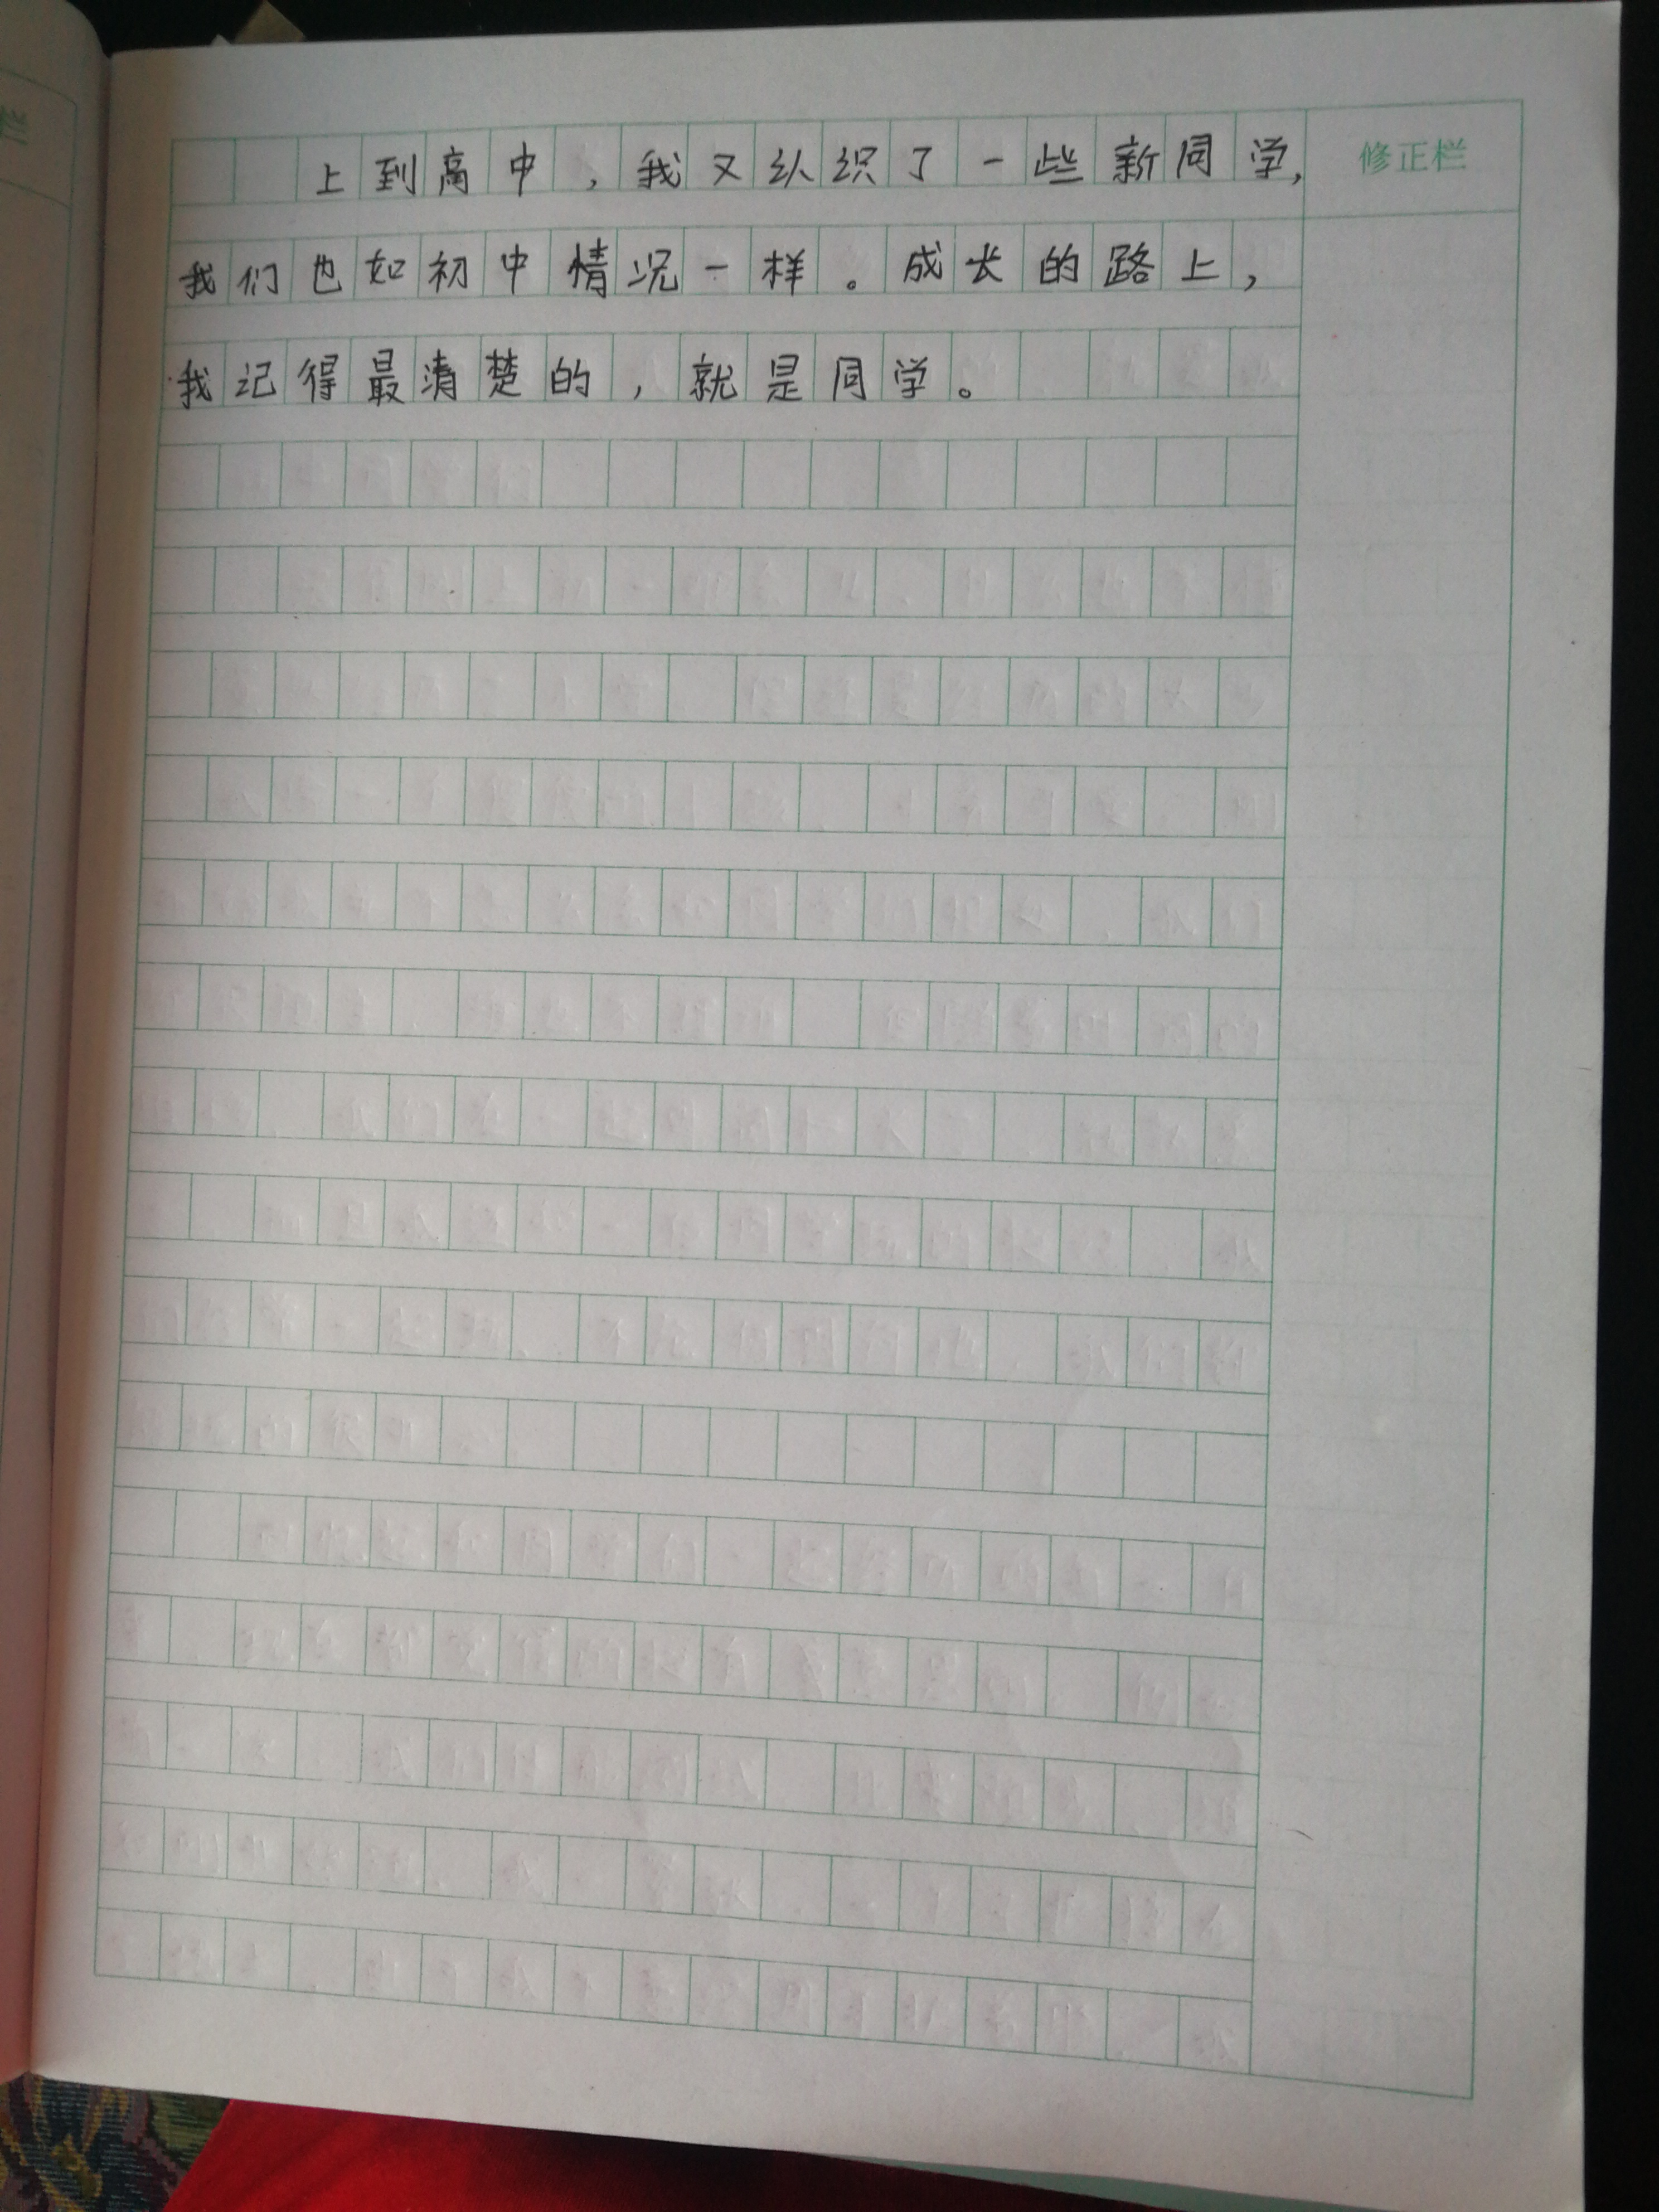 上到高中，我又认识了一些新同学，
修正栏
我们也如初中情况一样。成长的路上，
我记得最清楚的，就是同学。
栏